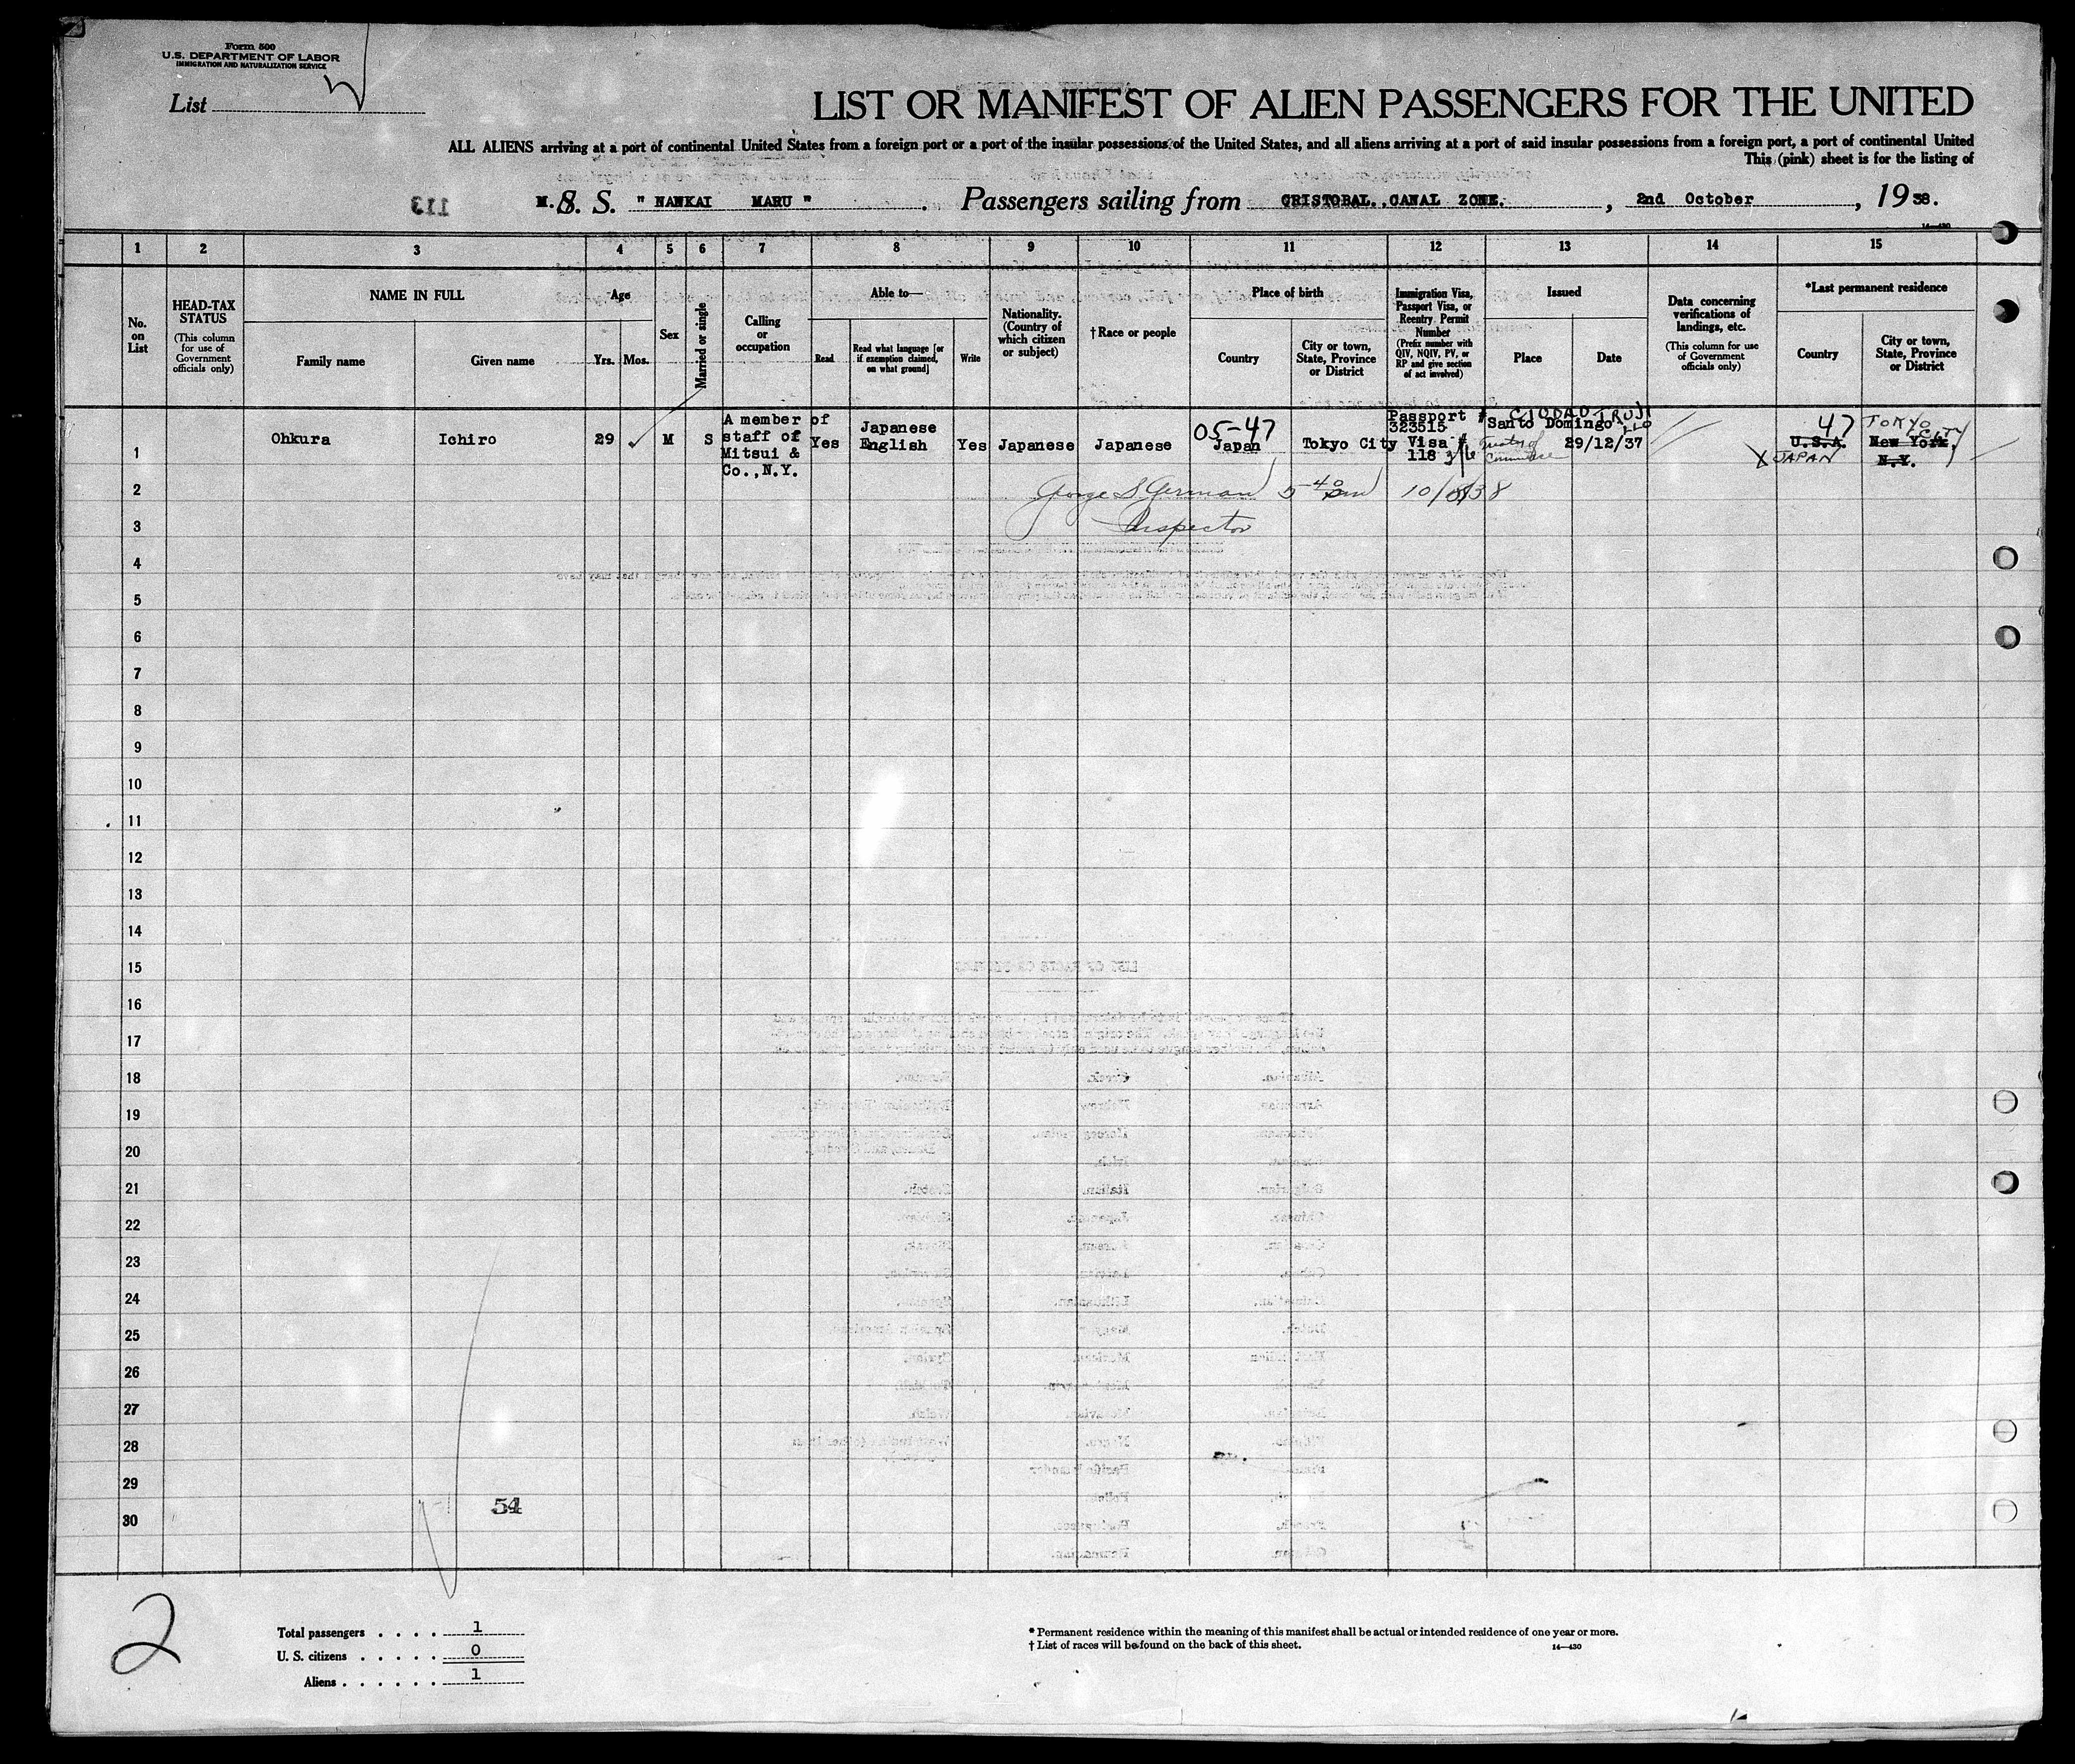 Form 500
U.S. DEPARTMENT OF LABOR
IMMIGRATION AND NATURALIZATION SERVICE
List
LIST OR MANIFEST OF ALIEN PASSENGERS FOR THE UNITED
ALL ALIENS arriving at a port of continental United States from a foreign port or a port of the insular possessions of the United States, and all aliens arriving at a port of said insular possessions from a foreign port, a port of continental United
This (pink) sheet is for the listing of
113
M.S. S. " NANKAI MARU " Passengers sailing from CRISTOBAL, CANAL ZONE. , 2nd October , 19 38.
14—430
1 2 3 4 5 6 7 8 9 10 11 12 13 14 15
No. on List
HEAD-TAX STATUS
(This column for use of Government officials only)
NAME IN FULL
Family name
Given name
Age
Yrs.
Mos.
Sex
Married or single
Calling or occupation
Able to—
Read
Read what language [or if exemption claimed, on what ground]
Write
Nationality. (Country of which citizen or subject)
†Race or people
Place of birth
Country
City or town, State, Province or District
Immigration Visa, Passport Visa, or Reentry Permit Number
(Prefix number with QIV, NQIV, PV, or RP and give section of act involved)
Issued
Place
Date
Data concerning verifications of landings, etc.
(This column for use of Government officials only)
*Last permanent residence
Country
City or town, State, Province or District
1
Ohkura
Ichiro
29
M
S
A member of
staff of
Mitsui &
Co.,N.Y.
Yes
Japanese
English
Yes
Japanese
Japanese
05-47
Japan
Tokyo City
Passport #
323515
Visa #
118 3/6
CIUDAD TRUJILLO
Santo Domingo
Treaty of
Commerce
29/12/37
47
U.S.A.
X JAPAN
TOKYO
CITY
New York,
N.Y.
2
George S German 5 40 pm 10/8/38
3
Inspector
4
5
6
7
8
9
10
11
12
13
14
15
16
17
18
19
20
21
22
23
24
25
26
27
28
29
30
54
2
Total passengers . . . . 1
U. S. citizens . . . . . 0
Aliens . . . . . . 1
* Permanent residence within the meaning of this manifest shall be actual or intended residence of one year or more.
† List of races will be found on the back of this sheet.
14—430